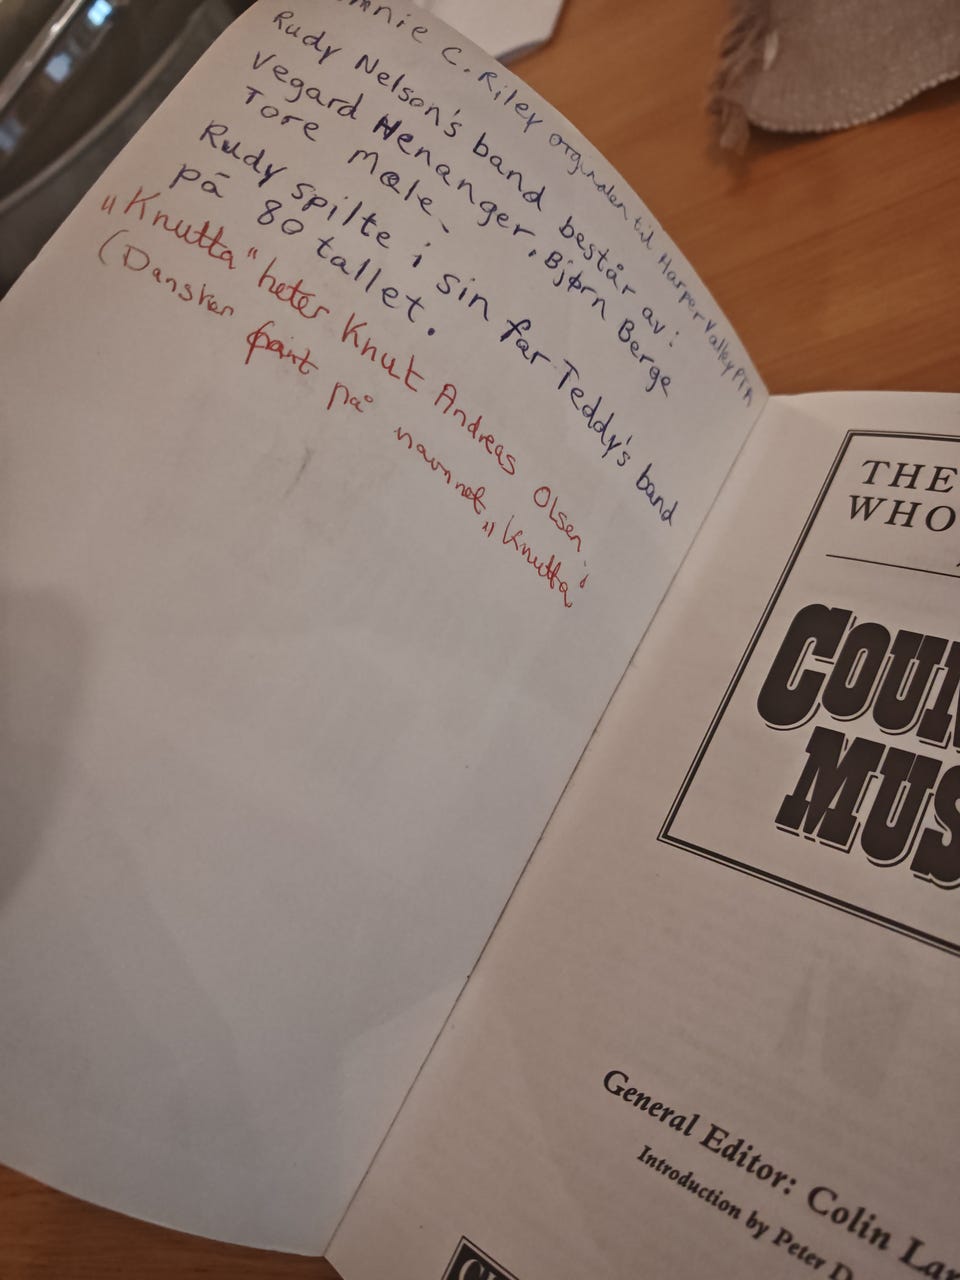 nnie C. Riley orginalen til Harper Valley PTA
Rudy Nelson's band består av:
Vegard Henanger, Bjørn Berge
Tore Mæle.
Rudy spilte i sin far Teddy's band
på 80 tallet.
"Knutta" heter Knut Andreas Olsen
(Dansken på navnet "Knutta"
THE
WHO
COUN
MUS
General Editor: Colin Lar
Introduction by Peter D